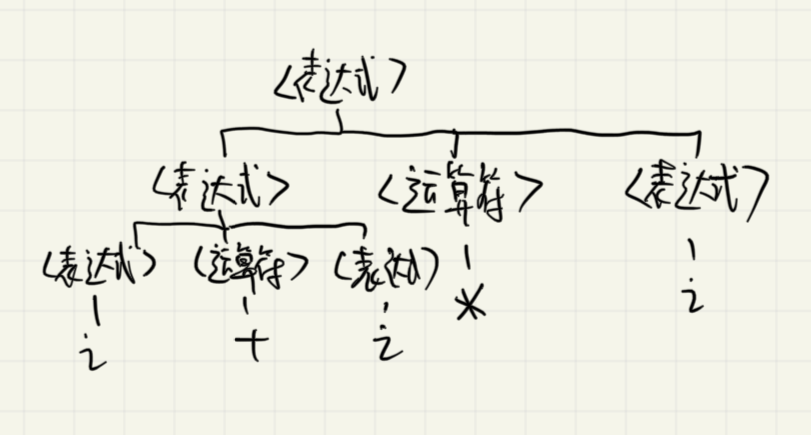 <表达式>
<表达式> <运算符> <表达式>
<表达式> <运算符> <表达式> * i
i + i